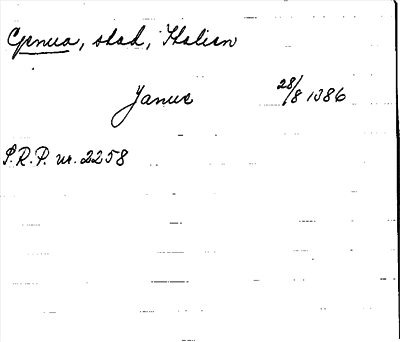 Genua, stad, Italien
Janue 28/8 1386
S.R.P. nr. 2258